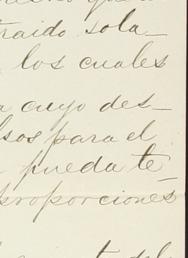 traido sola_
los cuales
a cuyo des_
sos para el
pueda te_
proporciones